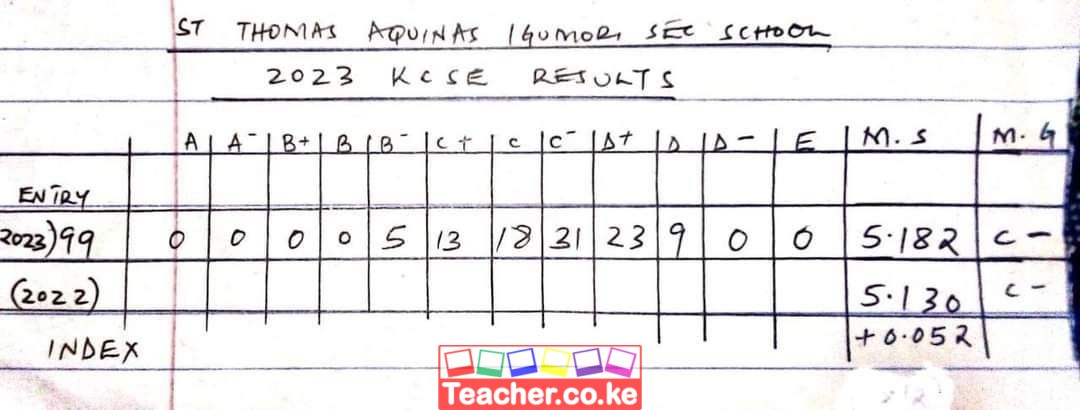 ST THOMAS AQUINAS IGUMORI SEC SCHOOL
2023 KCSE RESULTS
A A- B+ B B- C+ C C- D+ D D- E M.S M.G
ENTRY
2023)99 0 0 0 0 5 13 18 31 23 9 0 0 5.182 C-
(2022) 5.130 C-
+0.052
INDEX
Teacher.co.ke